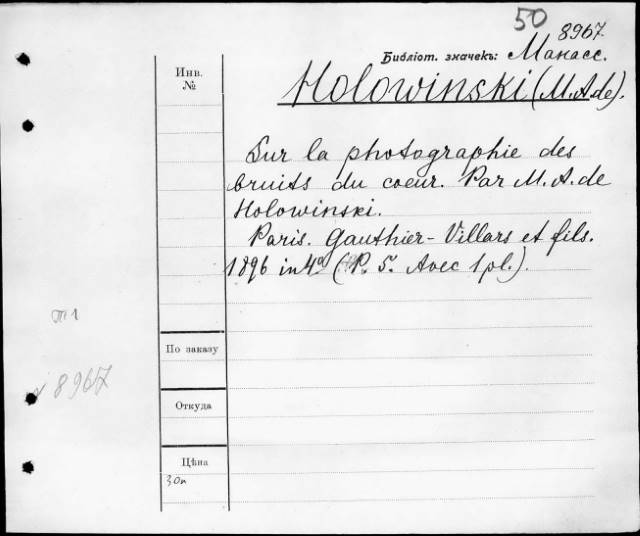 50
8967.
Библіот. значекъ: Манасс.
Инв.
№
Holowinski (M.A.de).
Sur la photographie des
bruits du coeur. Par M.A.de
Holowinski.
Paris. Gauthier-Villars et fils.
1896 in 4º (P. 5. Avec 1 pl.).
По заказу
8967
Откуда
Цѣна
30к